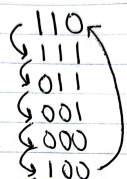 110
111
011
001
000
100